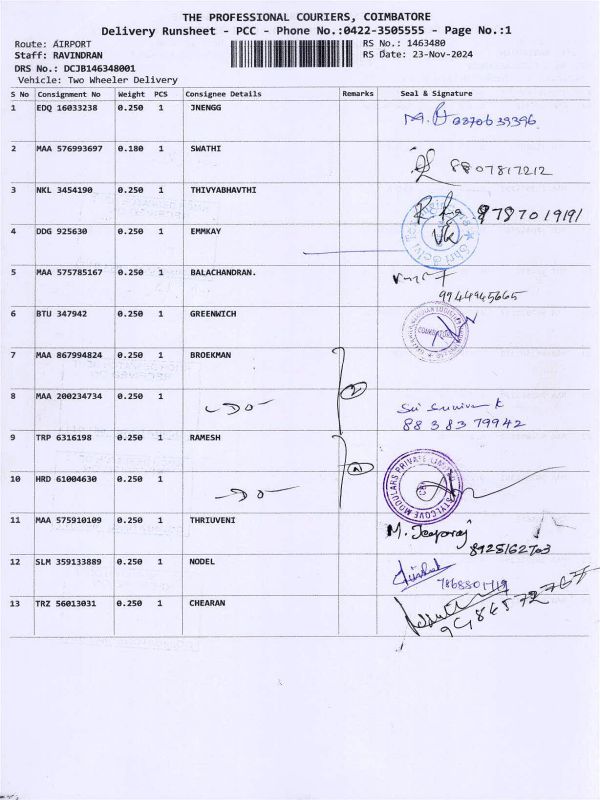 THE PROFESSIONAL COURIERS, COIMBATORE
Delivery Runsheet - PCC - Phone No.:0422-3505555 - Page No.:1
Route: AIRPORT
Staff: RAVINDRAN
DRS No.: DCJB146348001
Vehicle: Two Wheeler Delivery
RS No.: 1463480
RS Date: 23-Nov-2024
S No Consignment No Weight PCS Consignee Details Remarks Seal & Signature
1 EDQ 16033238 0.250 1 JNENGG
2 MAA 576993697 0.180 1 SWATHI 8807817212
3 NKL 3454190 0.250 1 THIVYABHAVTHI 9787019191
4 DDG 925630 0.250 1 EMMKAY
5 MAA 575785167 0.250 1 BALACHANDRAN.
9944945665
6 BTU 347942 0.250 1 GREENWICH COIMBATORE
7 MAA 867994824 0.250 1 BROEKMAN
2
8 MAA 200234734 0.250 1 -Do-
8838379942
9 TRP 6316198 0.250 1 RAMESH
10 HRD 61004630 0.250 1 -Do- STYLCOVE MODULARS PRIVATE LIMITED
11 MAA 575910109 0.250 1 THRIUVENI M. Jeyaraj
8925162703
12 SLM 359133889 0.250 1 NODEL
13 TRZ 56013031 0.250 1 CHEARAN